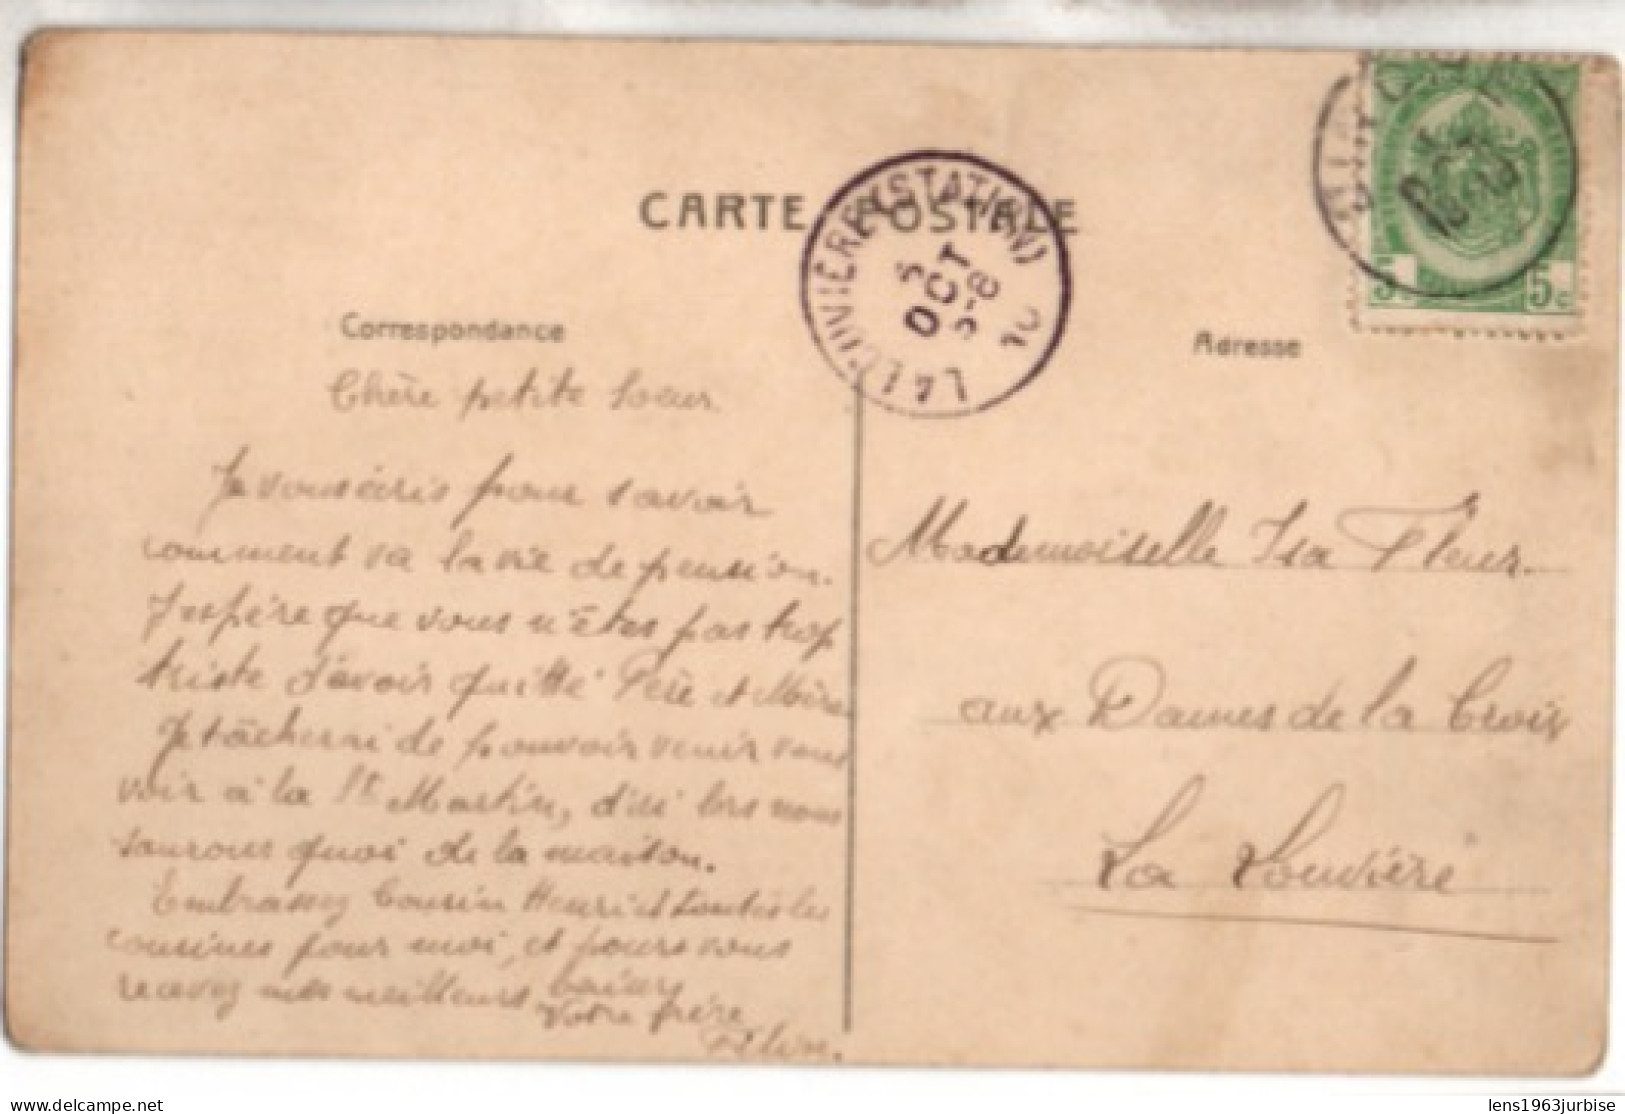 CARTE POSTALE
LA LOUVIERE (STATION)
5
OCT
10
5c 5c
Correspondance
Chère petite Soeur
Je vous écris pour savoir
comment va la vie de pension.
J'espère que vous n'êtes pas trop
triste d'avoir quitté Père et Mère
Je tâcherai de pouvoir venir vous
voir à la St Martin, d'ici lors nous
saurons quoi de la maison.
Embrassez Cousin Henri et toutes les
cousines pour moi, et pour vous
recevez mes meilleurs baisers
Votre frère
Adresse
Mademoiselle Isa Fleur.
aux Dames de la Croix
La Louvière
delcampe.net
lens1963jurbise